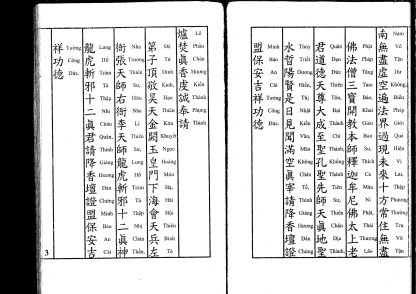 南無盡虛空遍法界過現未來十方常住無盡
Nam Vô Tận Hư Không Biến Pháp Giới Quá Hiện Vị Lai Thập Phương Thường Trụ Vô Tận
佛法僧三寶開教本師釋迦牟尼佛太上老
Phật Pháp Tăng Tam Bảo, Khai Giáo Bổn Sư, Thích Ca Mâu Ni Phật, Thái Thượng Lão
君道德天尊大成至聖孔聖先師天眞地聖
Quân Đạo Đức Thiên Tôn, Đại Thành Chí Thánh Khổng Thánh Tiên Sư, Thiên Chân Địa Thánh,
水哲陽賢是日見聞滿空眞宰請降香壇證
Thủy Triết Dương Hiền, Thị Nhật Kiến Văn Mãn Không Chân Tể, Thỉnh Giáng Hương Đàn Chứng
盟保安吉祥功德
Minh Bảo An Cát Tường Công Đức.
爐焚眞香虔誠奉請
Lô Phần Chân Hương Kiền Thành Phụng Thỉnh
弟子頂敬昊天金闕玉皇門下海會天兵左
Đệ Tử Đỉnh Kính Hạo Thiên Kim Khuyết Ngọc Hoàng Môn Hạ, Hải Hội Thiên Binh Tả
衙張天師右衙李天師龍虎斬邪十二眞神
Nha Trương Thiên Sư, Hữu Nha Lý Thiên Sư, Long Hổ Trảm Tà Thập Nhị Chân Thần,
龍虎斬邪十二眞君請降香壇證盟保安吉
Long Hổ Trảm Tà Thập Nhị Chân Quân Thỉnh Giáng Hương Đàn Chứng Minh Bảo An Cát
祥功德
Tường Công Đức.
3